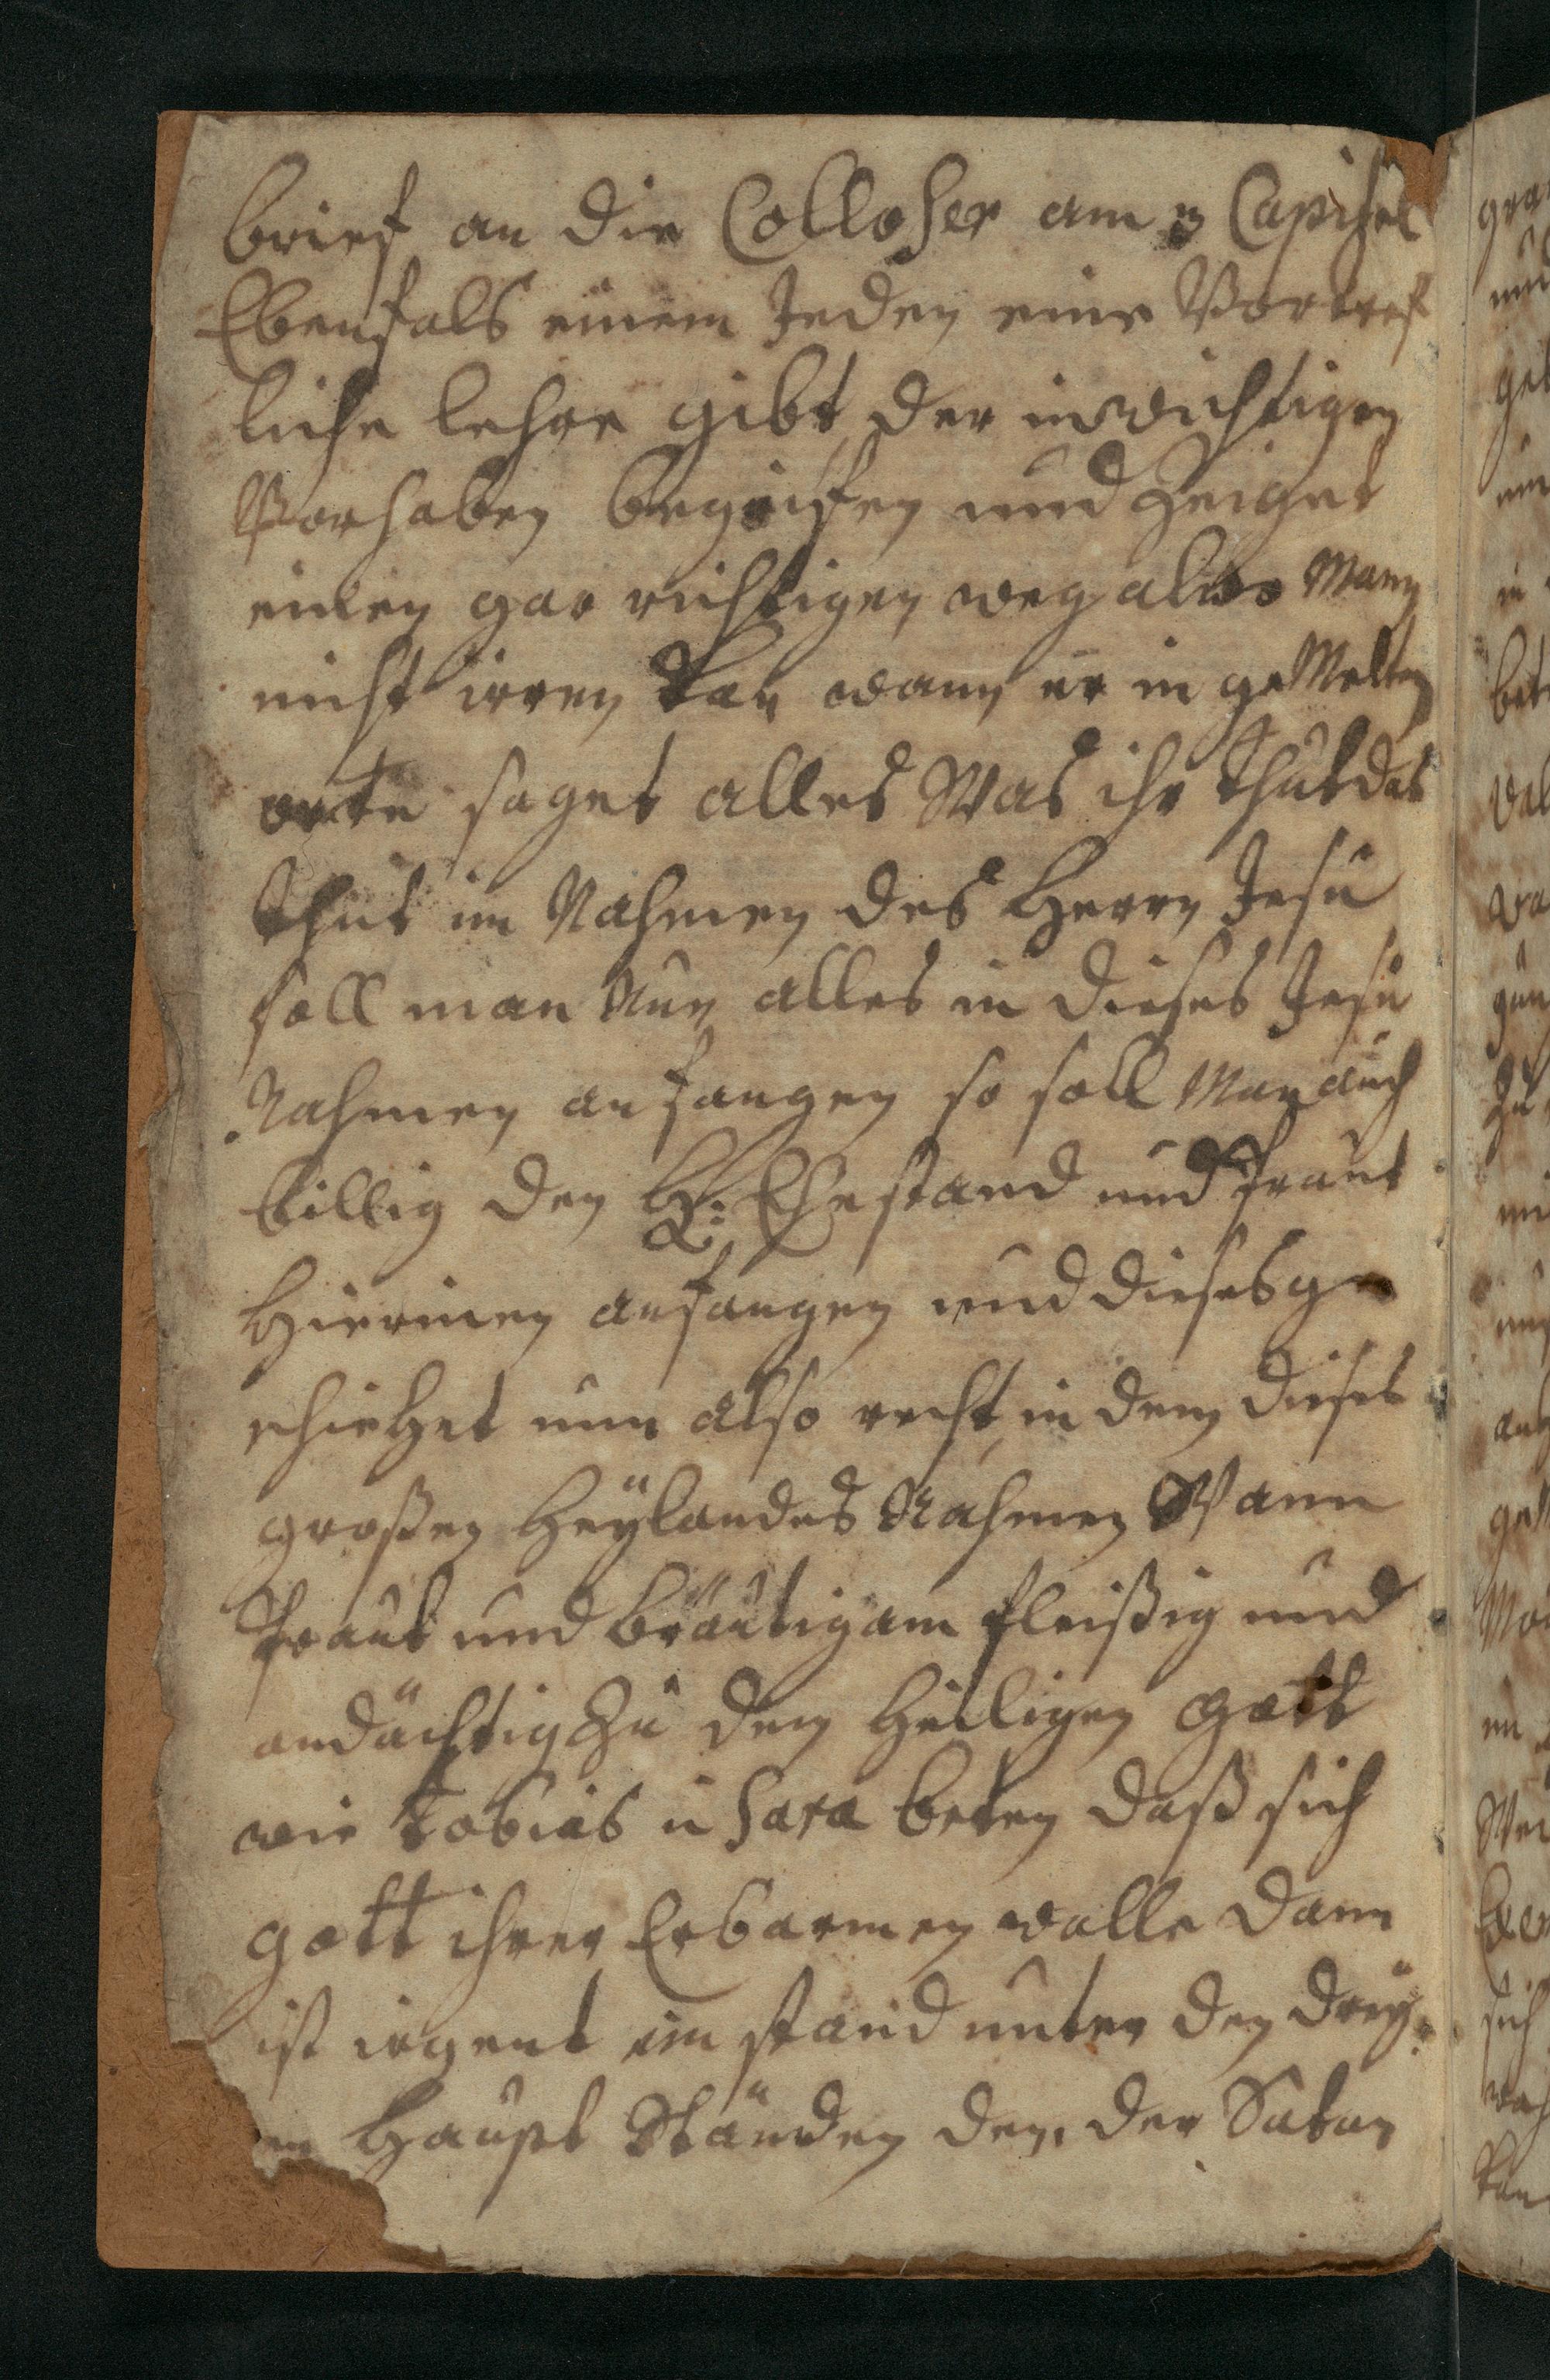 brief an die Colloser am 3 Capihel
Ebenfals einem Jeden eine Vortref
liche lehre gibt, der in wichtigen
Vorhaben begriffen und Zeiget
einen gar richtigen weg also Mann
nicht irren kan wann er in geMelten
orte saget alles Was ihr thut das
thut im Nahmen des Herrn Jesu
soll man Nun alles in dieses Jesu
Nahmen anfangen so soll Man auch
billig den H: Ehestand und Traut
Hierinen anfangen und dieses ge
schiehet nun also recht, in dem dieses
großen Heÿlandes Nahmen Wann
braut und bräutigam fleißig und
andächtig Zu dem Heiligen Gott
wie tobias u Sara beten daß sich
gott ihrer Erbarmen wolle dann
ist irgent ein stand unter den dreÿ
en Haupt Ständen den, der Satan